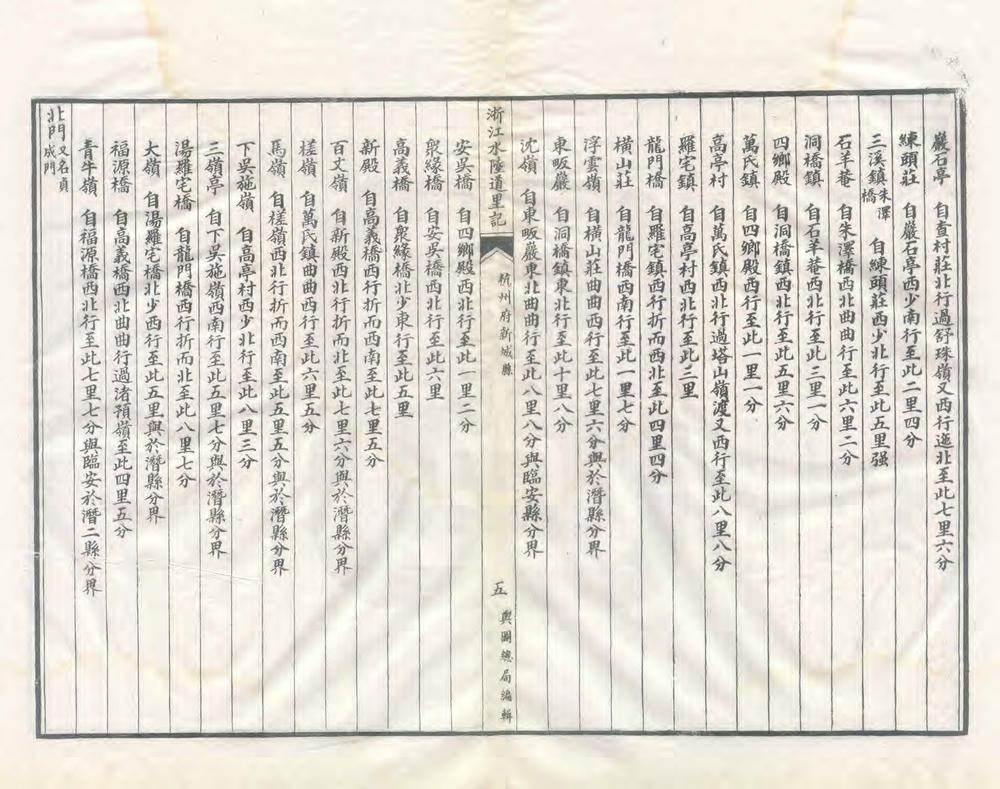 巖石亭　自查村莊北行過舒珠嶺又西行迤北至此七里六分
練頭莊　自巖石亭西少南行至此二里四分
三溪鎮朱澤橋　自練頭莊西少北行至此五里强
石羊菴　自朱澤橋西北曲曲行至此六里二分
洞橋鎮　自石羊菴西北行至此三里一分
四鄉殿　自洞橋鎮西北行至此五里六分
萬氏鎮　自四鄉殿西行至此一里一分
高亭村　自萬氏鎮西北行過塔山嶺渡又西行至此八里八分
羅宅鎮　自高亭村西北行至此三里
龍門橋　自羅宅鎮西行折而西北至此四里四分
橫山莊　自龍門橋西南行至此一里七分
浮雲嶺　自橫山莊曲曲西行至此七里六分與於潛縣分界
東畈巖　自洞橋鎮東北行至此十里八分
沈嶺　自東畈巖東北曲曲行至此八里八分與臨安縣分界
浙江水陸道里記　杭州府新城縣　五　輿圖總局編輯
安吳橋　自四鄉殿西北行至此一里二分
衆緣橋　自安吳橋西北行至此六里
高義橋　自衆緣橋北少東行至此五里
新殿　自高義橋西行折而西南至此七里五分
百丈嶺　自新殿西北行折而北至此七里六分與於潛縣分界
槎嶺　自萬氏鎮曲曲西行至此六里五分
馬嶺　自槎嶺西北行折而西南至此五里五分與於潛縣分界
下吳施嶺　自高亭村西少北行至此八里三分
三嶺亭　自下吳施嶺西南行至此五里七分與於潛縣分界
湯羅宅橋　自龍門橋西行折而北至此八里七分
大嶺　自湯羅宅橋北少西行至此五里與於潛縣分界
福源橋　自高義橋西北曲曲行過渚預嶺至此四里五分
青牛嶺　自福源橋西北行至此七里七分與臨安於潛二縣分界
北門又名貞成門